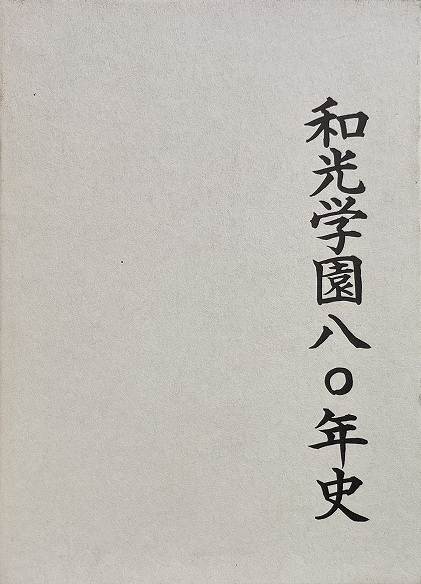 和光学園八〇年史